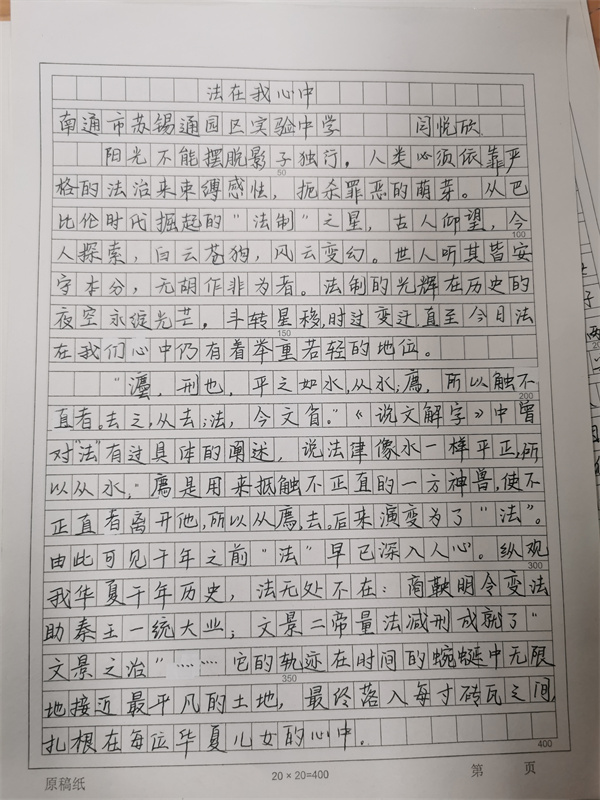 法在我心中
南通市苏锡通园区实验中学 闫悦欣
阳光不能摆脱影子独行，人类必须依靠严
50
格的法治来束缚感怯，扼杀罪恶的萌芽。从巴
比伦时代掘起的“法制”之星，古人仰望，今
100
人探索，白云苍狗，风云变幻。世人听其皆安
守本分，无胡作非为者。法制的光辉在历史的
夜空永绽光芒，斗转星移，时过变迁，直至今日法
150
在我们心中仍有着举重若轻的地位。
“灋，刑也，平之如水，从水；廌，所以触不
200
直者。去之，从去；法，今文省。”《说文解字》中曾
对“法”有过具体的阐述，说法律像水一样平正，所
以从水，“廌是用来抵触不正直的一方神兽，使不
正直者离开他，所以从廌，去。后来演变为了“法”。
由此可见千年之前“法”早已深入人心。纵观
300
我华夏千年历史，法无处不在：商鞅明令变法
助秦王一统大业；文景二帝量法减刑成就了“
文景之治”……它的轨迹在时间的蜿蜒中无限
350
地接近最平凡的土地，最终落入每寸砖瓦之间，
扎根在每位华夏儿女的心中。
400
原稿纸 20×20=400 第 页